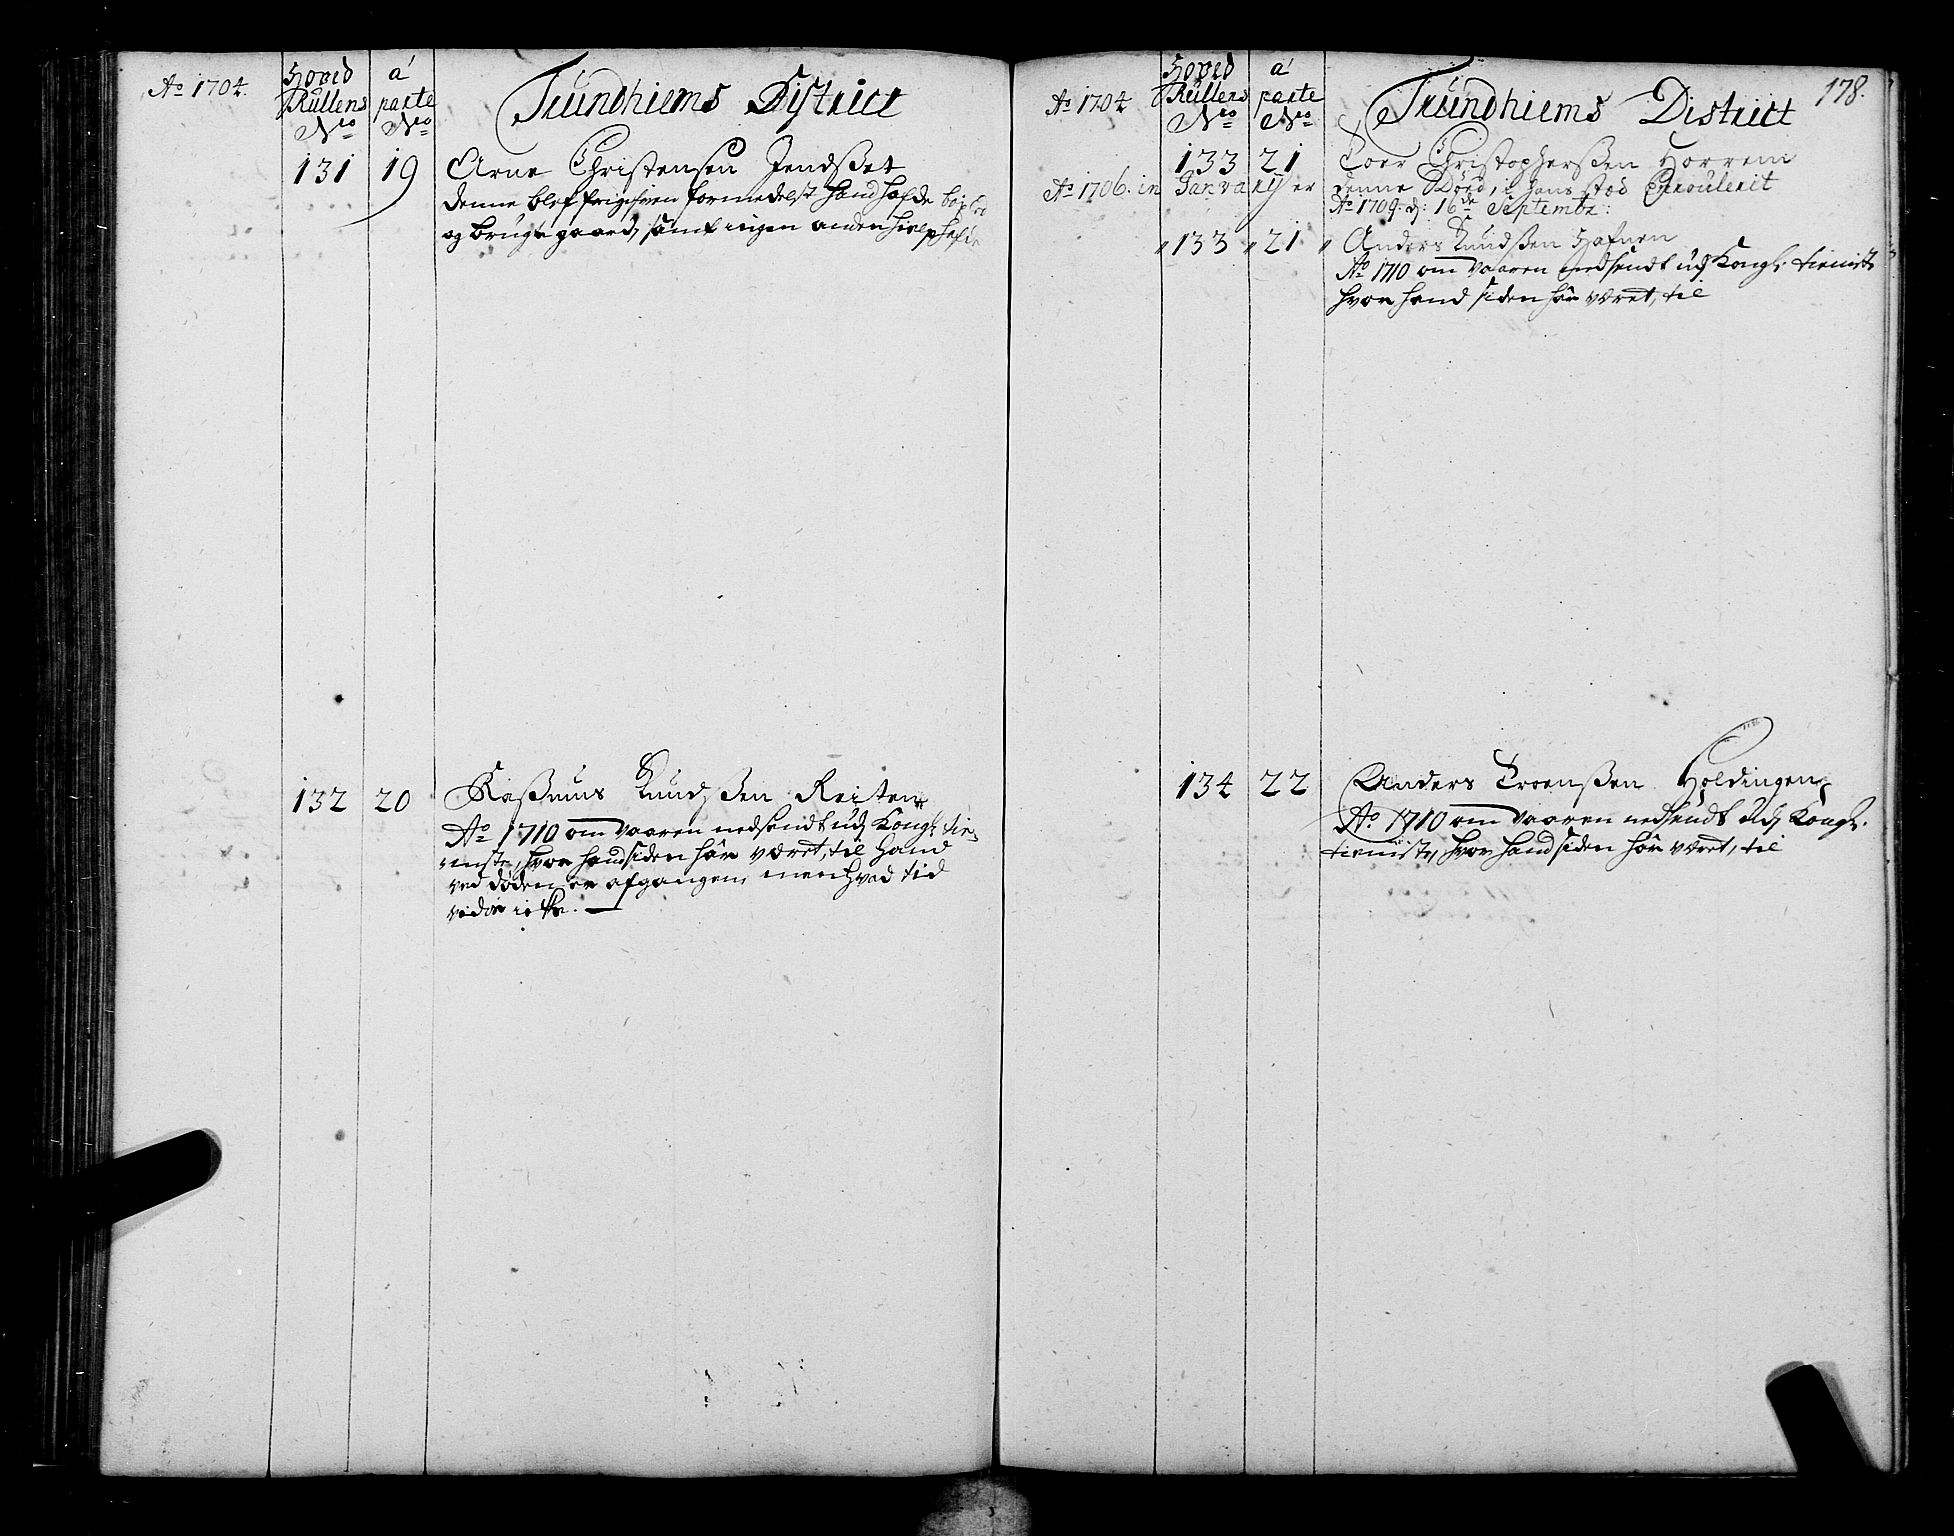 Ao 1704.
Hoved Rullens No
a parte No
Trundhiems District
131 19 Arne Christensen Jendsset
denne blef frigifven formedelst hand hafde
og bruge gaard, samt ingen anden hielp hafde
132 20 Rassmus Knudssen Reiten
Ao 1710 om vaaren nedsendt udj Kongl: tie-
niste, hvor hand siden hār været, til hand
ved døden er afgangen, men hvad tid
vides icke.
178.
Ao 1704
Hoved Rullens No
a parte No
Trundhiems District
133 21 Toer Christopherssen Horrem
Ao 1706. in Janvarij er denne Død, i hans stød Enroulerit
Ao 1709. d: 16de Septembr:
133 21 Anders Knudssen Hafnen
Ao 1710 om vaaren nedsendt udj Kongl: tieniste
hvor hand siden hār været, til
134 22 Anders Troenssen Holdingen
Ao 1710 om vaaren nedsendt udj Kongl:
tieniste, hvor hand siden hār været, til